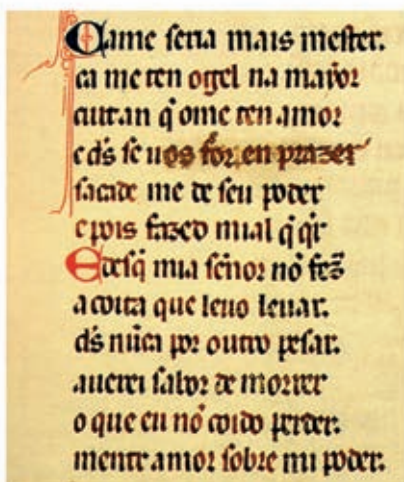 Ca me seria mais mester.
ca me ten ogel na mayor
cuitan q̃ ome ten amor
e d̃s se uos for en prazer
sacade me de seu poder
e pois fazed mi al q̃ q̃r
E desq̃ mia sẽnor nõ fez̃
a coita que leuo leuar.
d̃s nũca por outro pesar.
auerei sabor de morrer
o que eu nõ coido perder.
mentr amor sobre mi poder.